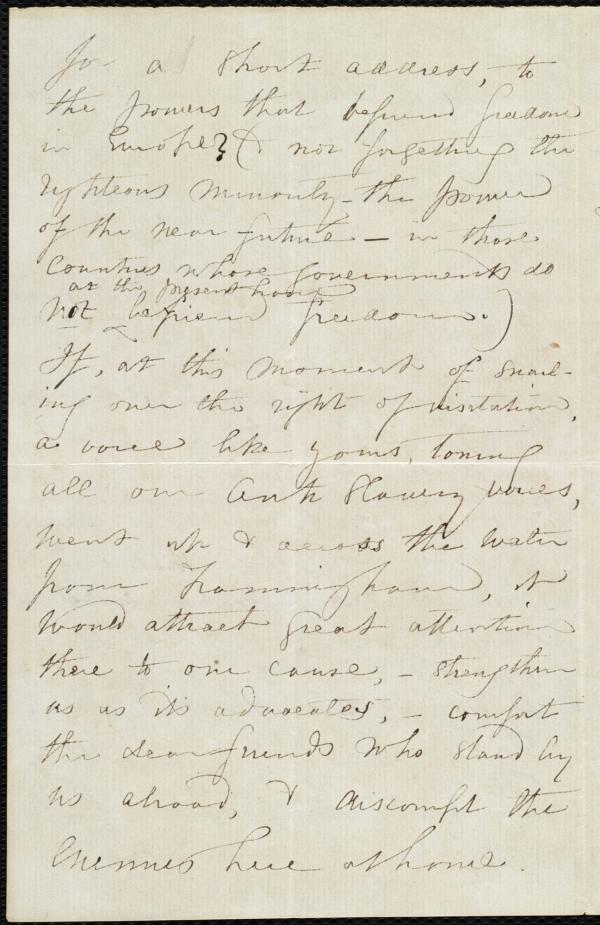 for a short address, to
the powers that befriend freedom
in Europe? (& not forgetting the
righteous minority – the power
of the near future – in those
countries whose governments do
at the present hour
not befriend freedom.)
If, at this moment of snarl-
ing over the right of visitation,
a voice like yours, toning
all our Anti Slavery voices,
went up & across the water
from Framingham, it
would attract great attention
there to our cause, – strengthen
us as its advocates, – comfort
the dear friends who stand by
us abroad, & discomfit the
enemies here at home.